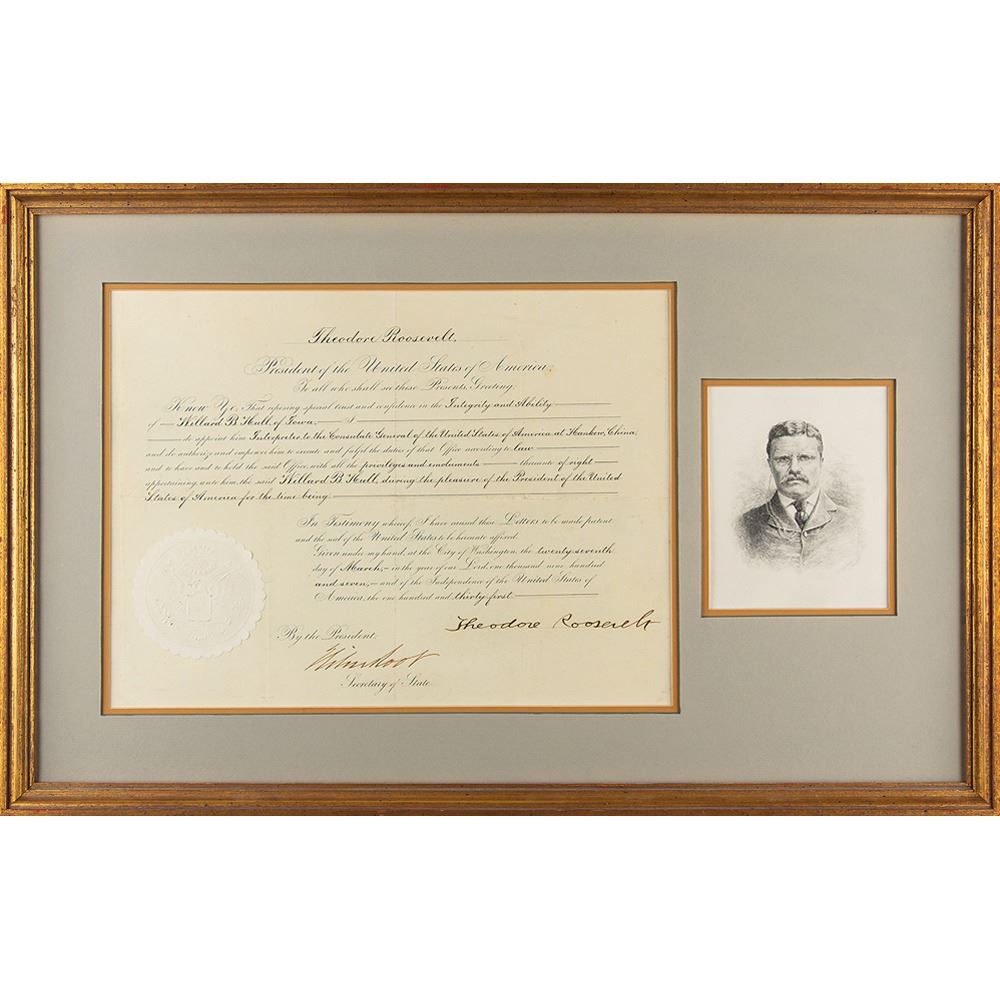 Theodore Roosevelt,
President of the United States of America,
To all who shall see these Presents, Greeting:
Know Ye, That reposing special trust and confidence in the Integrity and Ability
of Willard B. Hull, of Iowa, I
do appoint him Interpreter to the Consulate General of the United States of America at Hankow, China,
and do authorize and empower him to execute and fulfil the duties of that Office according to law
and to have and to hold the said Office, with all the privileges and emoluments thereunto of right
appertaining, unto him, the said Willard B. Hull, during the pleasure of the President of the United
States of America for the time being.
In Testimony whereof, I have caused these Letters to be made patent
and the seal of the United States to be hereunto affixed.
Given under my hand, at the City of Washington, the twenty-seventh
day of March, in the year of our Lord one thousand nine hundred
and seven, and of the Independence of the United States of
America, the one hundred and thirty-first
Theodore Roosevelt
By the President:
Elihu Root
Secretary of State.